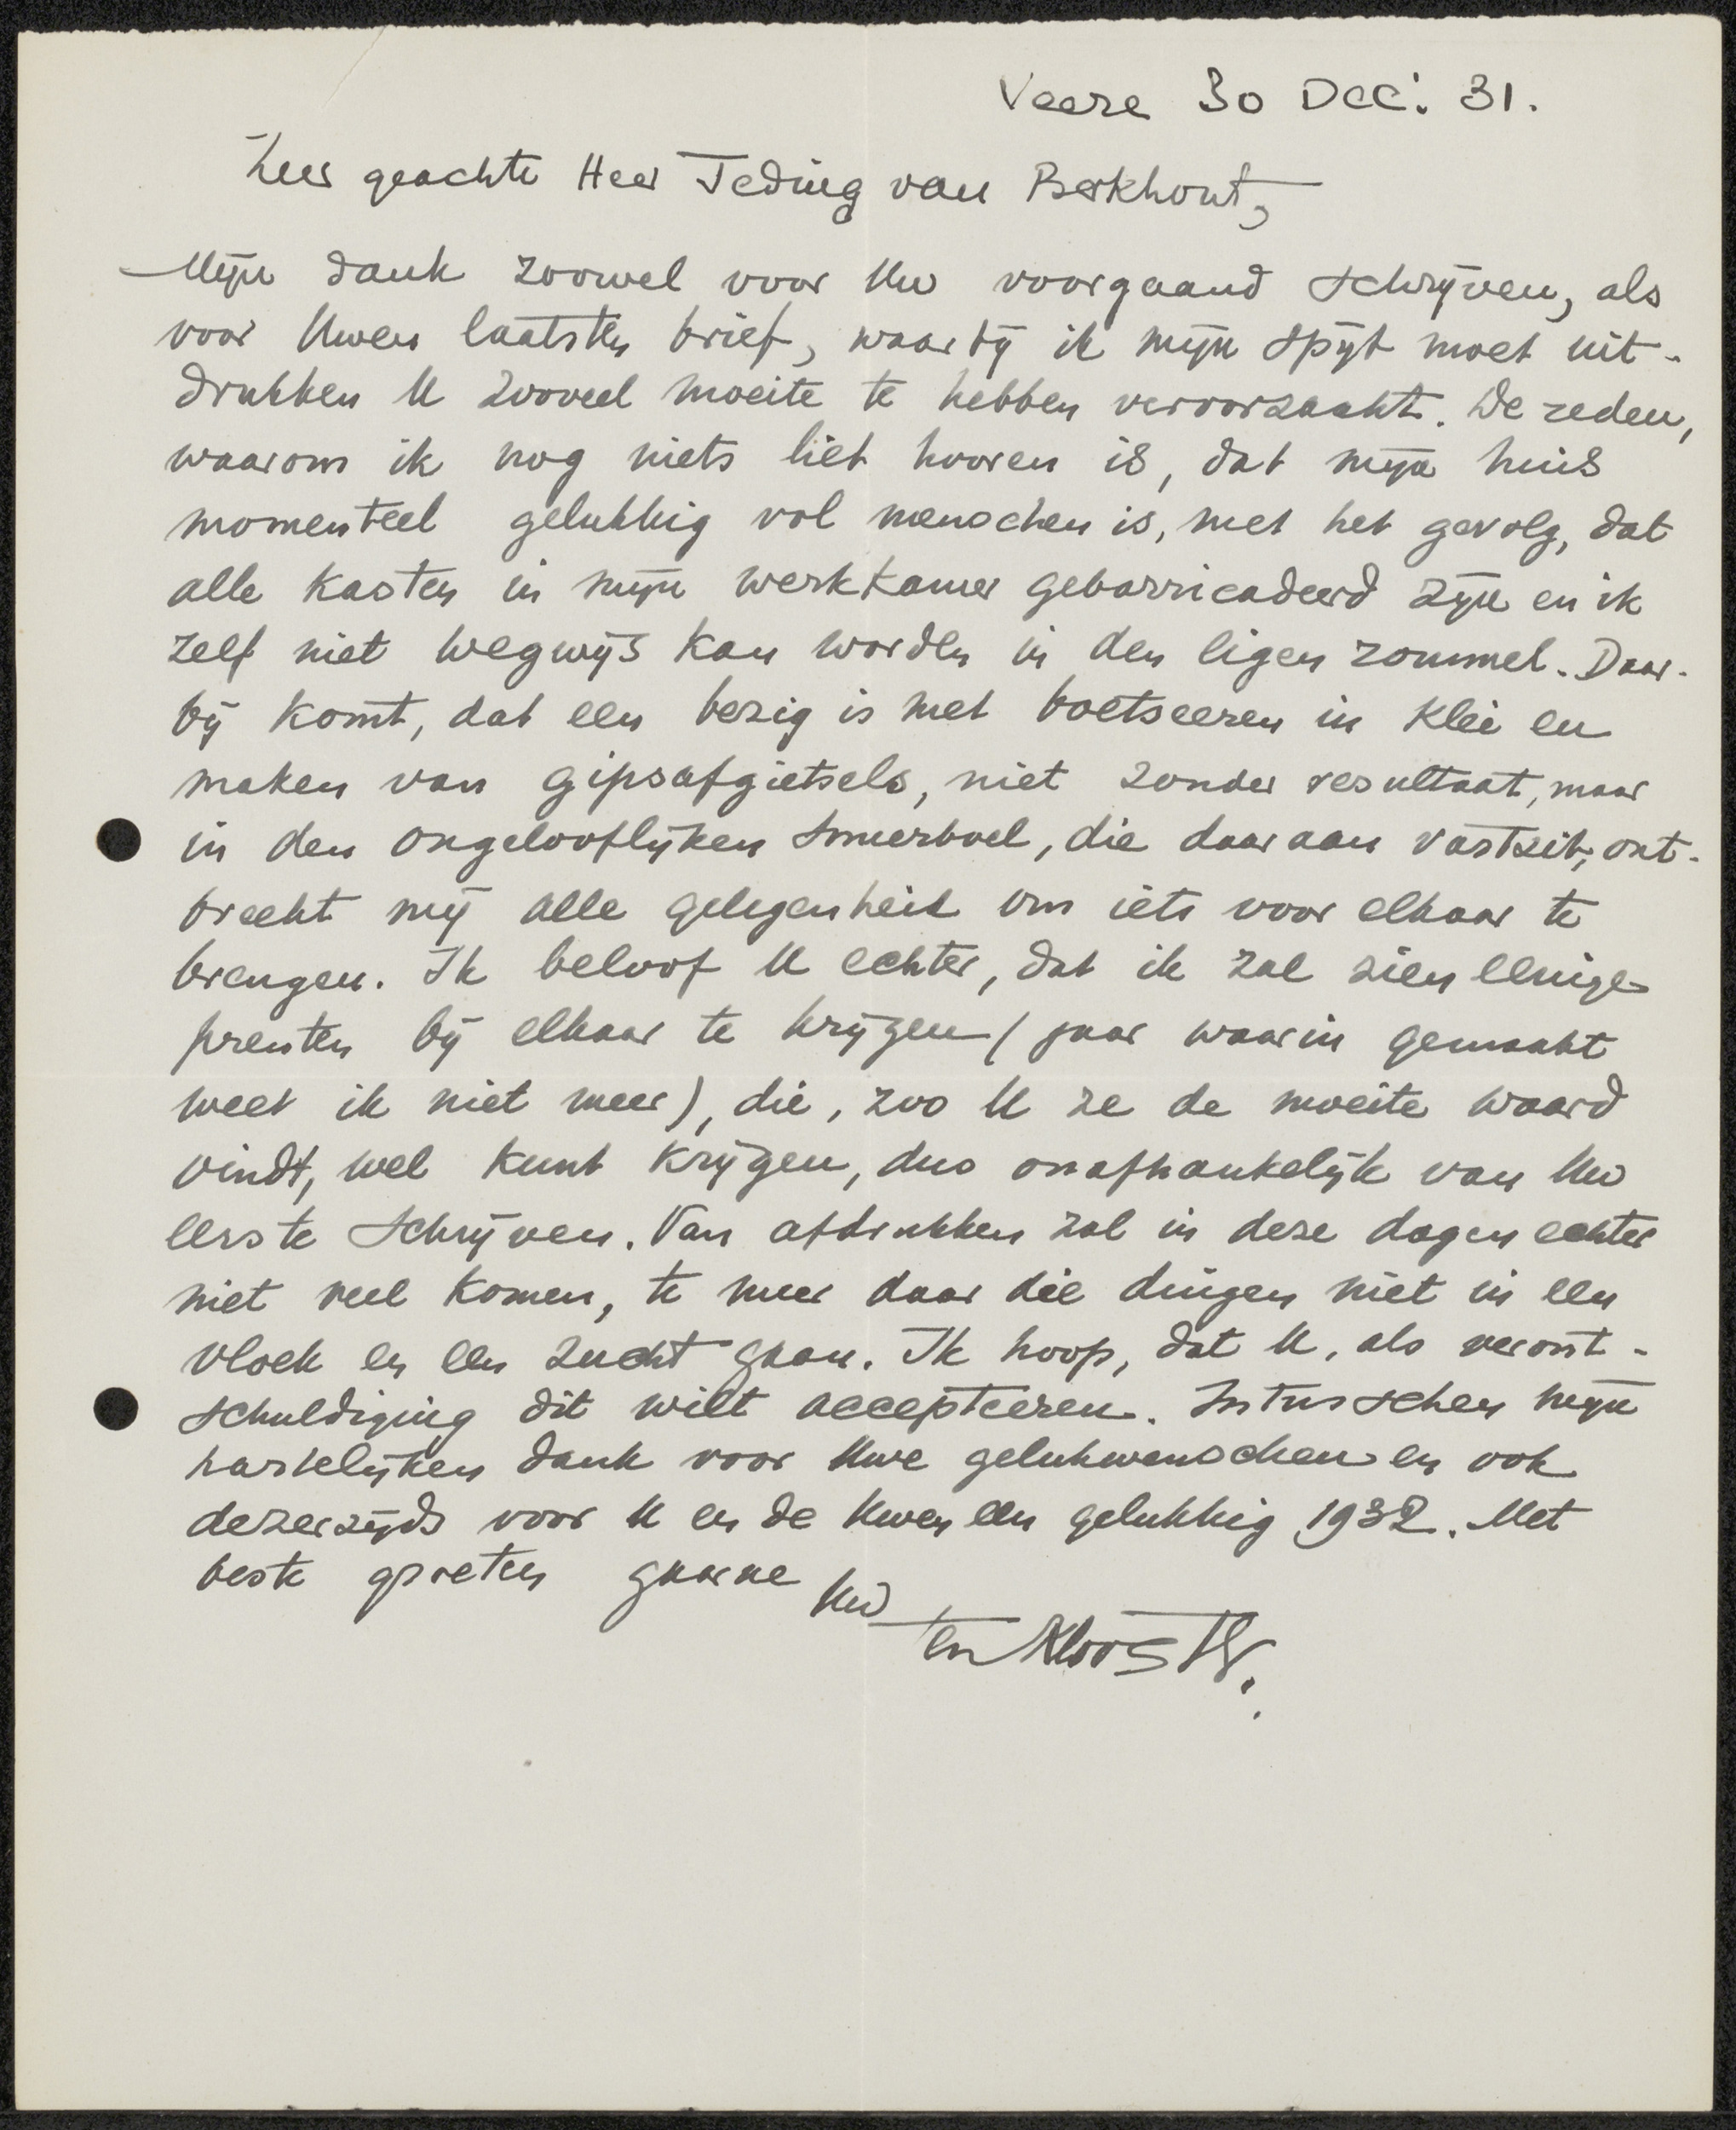 Veere 30 Dec: 31.
Zeer geachte Heer Teding van Berkhout,
Mijn dank zoowel voor Uw voorgaand schrijven, als
voor Uwen laatsten brief, waarbij ik mijn spijt moet uit-
drukken U zooveel moeite te hebben veroorzaakt. De reden,
waarom ik nog niets liet hooren is, dat mijn huis
momenteel gelukkig vol menschen is, met het gevolg, dat
alle kasten in mijn werkkamer gebarricadeerd zijn en ik
zelf niet wegwijs kan worden in den eigen rommel. Daar-
bij komt, dat een bezig is met boetseeren in klei en
maken van gipsafgietsels, niet zonder resultaat, maar
in den ongelooflijken smeerboel, die daaraan vastzit, ont-
breekt mij alle gelegenheid om iets voor elkaar te
brengen. Ik beloof U echter, dat ik zal zien eenige
prenten bij elkaar te krijgen (jaar waarin gemaakt
weet ik niet meer), die, zoo U ze de moeite waard
vindt, wel kunt krijgen, dus onafhankelijk van Uw
eerste schrijven. Van afdrukken zal in deze dagen echter
niet veel komen, te meer daar die dingen niet in een
vloek en een zucht gaan. Ik hoop, dat U, als veront-
schuldiging dit wilt accepteeren. Intusschen mijn
hartelijken dank voor Uwe gelukwenschen en ook
dezerzijds voor U en de Uwen een gelukkig 1932. Met
beste groeten gaarne Uw
ten Klooster.